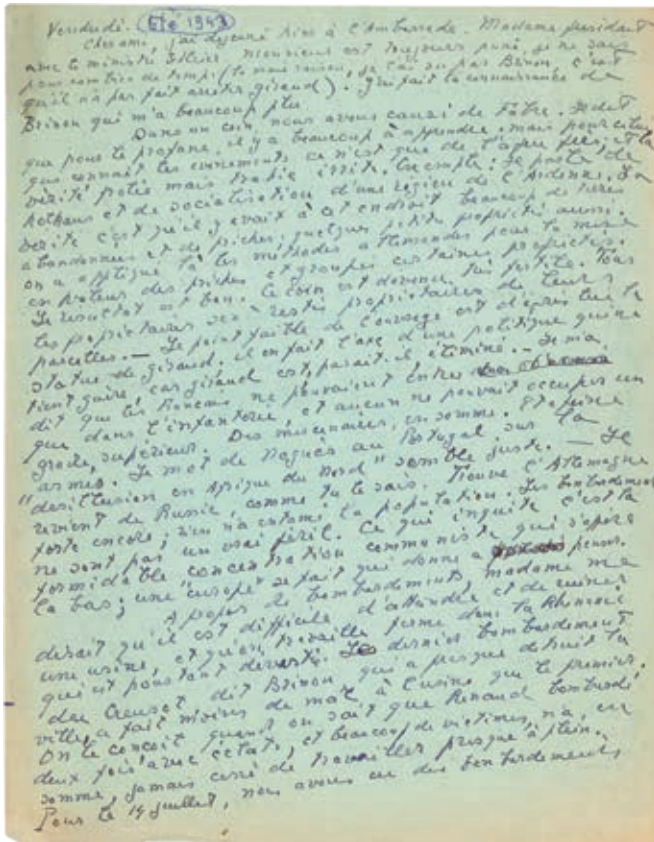 Vendredi. Été 1943
Cher ami, j'ai déjeuné hier à l'Ambassade. Madame présidait
avec le ministre Monsieur est toujours puni, je ne sais
pour combien de temps (la raison, je l'ai su par Brinon, c'est
qu'il n'a pas fait arrêter giraud). J'ai fait la connaissance de
Brinon qui m'a beaucoup plu.
Dans un coin, nous avons causé de Fabre. Il dit
que pour le profane, il y a beaucoup à apprendre, mais pour celui
qui connaît les événements ce n'est que de l'à peu près, et la
vérité frôlée mais trahie irrite. Exemple: Je parle de
kolkhoze et de socialisation d'une région de l'Ardenne. La
vérité c'est qu'il y avait à cet endroit beaucoup de terres
abandonnées et de friches, quelques petites propriétés aussi.
on a appliqué là les méthodes allemandes pour la mise
en valeur des friches et groupé certaines propriétés.
Le résultat est bon. Le coin est devenu très fertile. Tous
les propriétaires restés propriétaires de leurs
parcelles. — Le point faible de l'ouvrage est d'après lui la
statue de giraud. il en fait l'axe d'une politique qui ne
tient guère, car giraud est, paraît-il éliminé. — Je m'a
dit que les Français ne pouvaient entrer
que dans l'infanterie, et aucun ne pouvait occuper un
grade supérieur. Des mercenaires, en somme. Et à peine
armés. Le mot de Noguès au Portugal sur la
"désillusion en Afrique du Nord" semble juste. — Il
revient de Russie, comme tu le sais. Trouve l'Allemagne
forte encore; rien n'a entamé la population. Les bombardements
ne sont pas un vrai péril. Ce qui inquiète c'est la
formidable concentration communiste qui s'opère
là bas; une "europe" se fait qui donne à penser.
A propos de bombardements, madame me
disait qu'il est difficile d'atteindre et de ruiner
une usine, et qu'on travaille ferme dans la Rhénanie
qui est pourtant dévastée. Le dernier bombardement
du Creusot dit Brinon qui a presque détruit la
ville, a fait moins de mal à l'usine que le premier.
On le conçoit quand on sait que Renaud bombardé
deux fois avec éclat, et beaucoup de victimes, n'a, en
somme, jamais cessé de travailler presque à plein.
Pour le 14 juillet, nous avons eu des bombardements